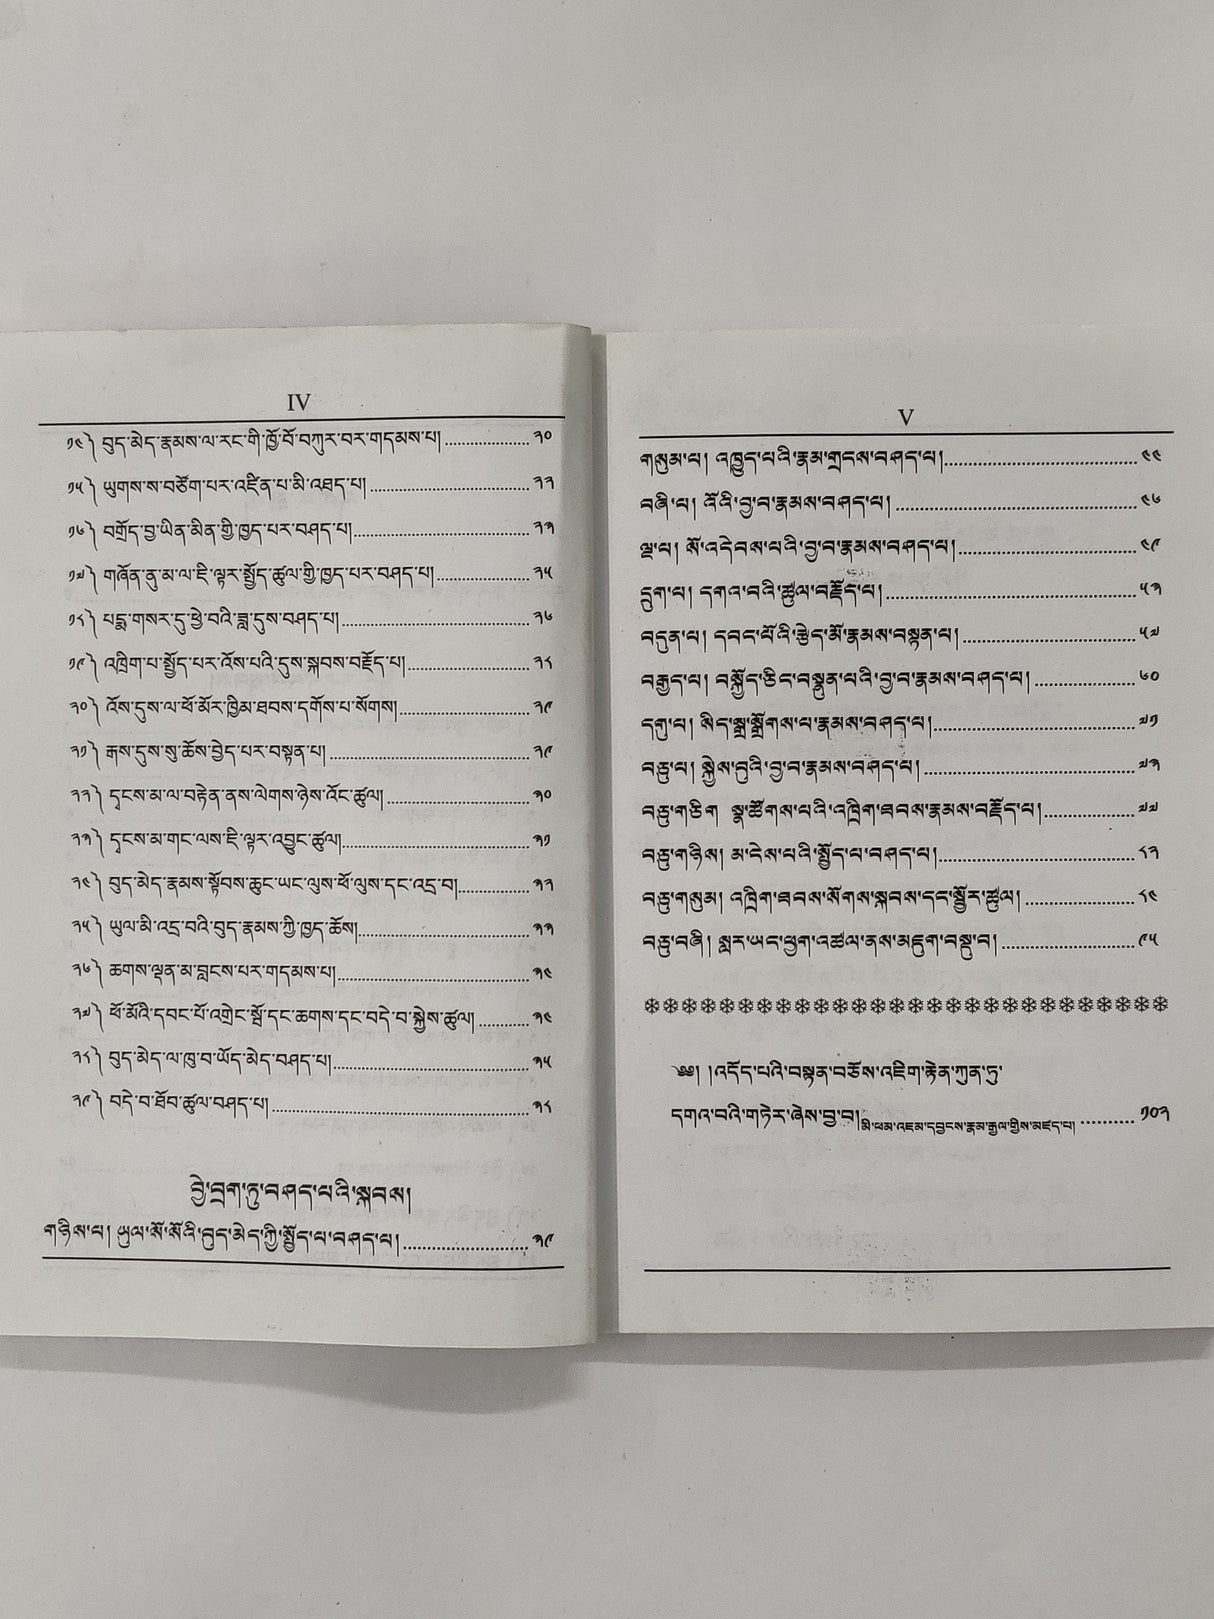 IV
༡༤༽ བུད་མེད་རྣམས་ལ་རང་གི་ཁྱོ་བོ་བཀུར་བར་གདམས་པ། ༢༠
༡༥༽ ཡུགས་ས་བཙོག་པར་འཛིན་པ་མི་འཐད་པ། ༢༢
༡༦༽ བགྲོད་བྱ་ཡིན་མིན་གྱི་ཁྱད་པར་བཤད་པ། ༢༣
༡༧༽ གཞོན་ནུ་མ་ལ་ཇི་ལྟར་སྤྱོད་ཚུལ་གྱི་ཁྱད་པར་བཤད་པ། ༢༥
༡༨༽ པདྨ་གསར་དུ་ཕྱེ་བའི་ཟླ་དུས་བཤད་པ། ༢༦
༡༩༽ འཁྲིག་པ་སྤྱོད་པར་འོས་པའི་དུས་སྐབས་བརྗོད་པ། ༢༨
༢༠༽ འོས་དུས་ལ་ཕོ་མོར་ཁྱིམ་ཐབས་དགོས་པ་སོགས། ༢༩
༢༡༽ རྒས་དུས་སུ་ཆོས་བྱེད་པར་བསྟན་པ། ༢༩
༢༢༽ དྭངས་མ་ལ་བརྟེན་ནས་ལེགས་ཉེས་འོང་ཚུལ། ༣༠
༢༣༽ དྭངས་མ་གང་ལས་ཇི་ལྟར་འབྱུང་ཚུལ། ༣༡
༢༤༽ བུད་མེད་རྣམས་སྟོབས་ཆུང་ཡང་ལུས་ཕོ་ལུས་དང་འདྲ་བ། ༣༢
༢༥༽ ཡུལ་མི་འདྲ་བའི་བུད་རྣམས་ཀྱི་ཁྱད་ཆོས། ༣༣
༢༦༽ ཆགས་ལྡན་མ་བླངས་པར་གདམས་པ། ༣༤
༢༧༽ ཕོ་མོའི་དབང་པོ་འགྲེང་སྦོ་དང་ཆགས་དང་བདེ་བ་སྐྱེས་ཚུལ། ༣༤
༢༨༽ བུད་མེད་ལ་ཁུ་བ་ཡོད་མེད་བཤད་པ། ༣༥
༢༩༽ བདེ་བ་ཐོབ་ཚུལ་བཤད་པ། ༣༨
བྱེ་བྲག་ཏུ་བཤད་པའི་སྐབས།
གཉིས་པ། ཡུལ་སོ་སོའི་བུད་མེད་ཀྱི་སྤྱོད་པ་བཤད་པ། ༣༩
V
གསུམ་པ། འཁྱུད་པའི་རྣམ་གྲངས་བཤད་པ། ༤༤
བཞི་པ། འོའི་བྱ་བ་རྣམས་བཤད་པ། ༤༦
ལྔ་པ། སོ་འདེབས་པའི་བྱ་བ་རྣམས་བཤད་པ། ༤༩
དྲུག་པ། དགའ་བའི་ཚུལ་བརྗོད་པ། ༥༣
བདུན་པ། དབང་པོའི་རྩེད་མོ་རྣམས་བསྟན་པ། ༥༧
བརྒྱད་པ། བསྐྱོད་ཅིང་བསྟུན་པའི་བྱ་བ་རྣམས་བཤད་པ། ༦༠
དགུ་པ། སིད་སྒྲ་སྒྲོགས་པ་རྣམས་བཤད་པ། ༧༡
བཅུ་པ། སྐྱེས་བུའི་བྱ་བ་རྣམས་བཤད་པ། ༧༣
བཅུ་གཅིག སྣ་ཚོགས་པའི་འཁྲིག་ཐབས་རྣམས་བརྗོད་པ། ༧༧
བཅུ་གཉིས། མ་ངེས་པའི་སྤྱོད་པ་བཤད་པ། ༨༣
བཅུ་གསུམ། འཁྲིག་ཐབས་སོགས་སྐབས་དང་སྦྱོར་ཚུལ། ༨༤
བཅུ་བཞི། སླར་ཡང་ཕྱག་འཚལ་ནས་མཇུག་བསྡུ་བ། ༩༥
༄༅། །འདོད་པའི་བསྟན་བཅོས་འཇིག་རྟེན་ཀུན་ཏུ་
དགའ་བའི་གཏེར་ཞེས་བྱ་བ། མི་ཕམ་འཇམ་དབྱངས་རྣམ་རྒྱལ་གྱིས་མཛད་པ། ༡༠༣